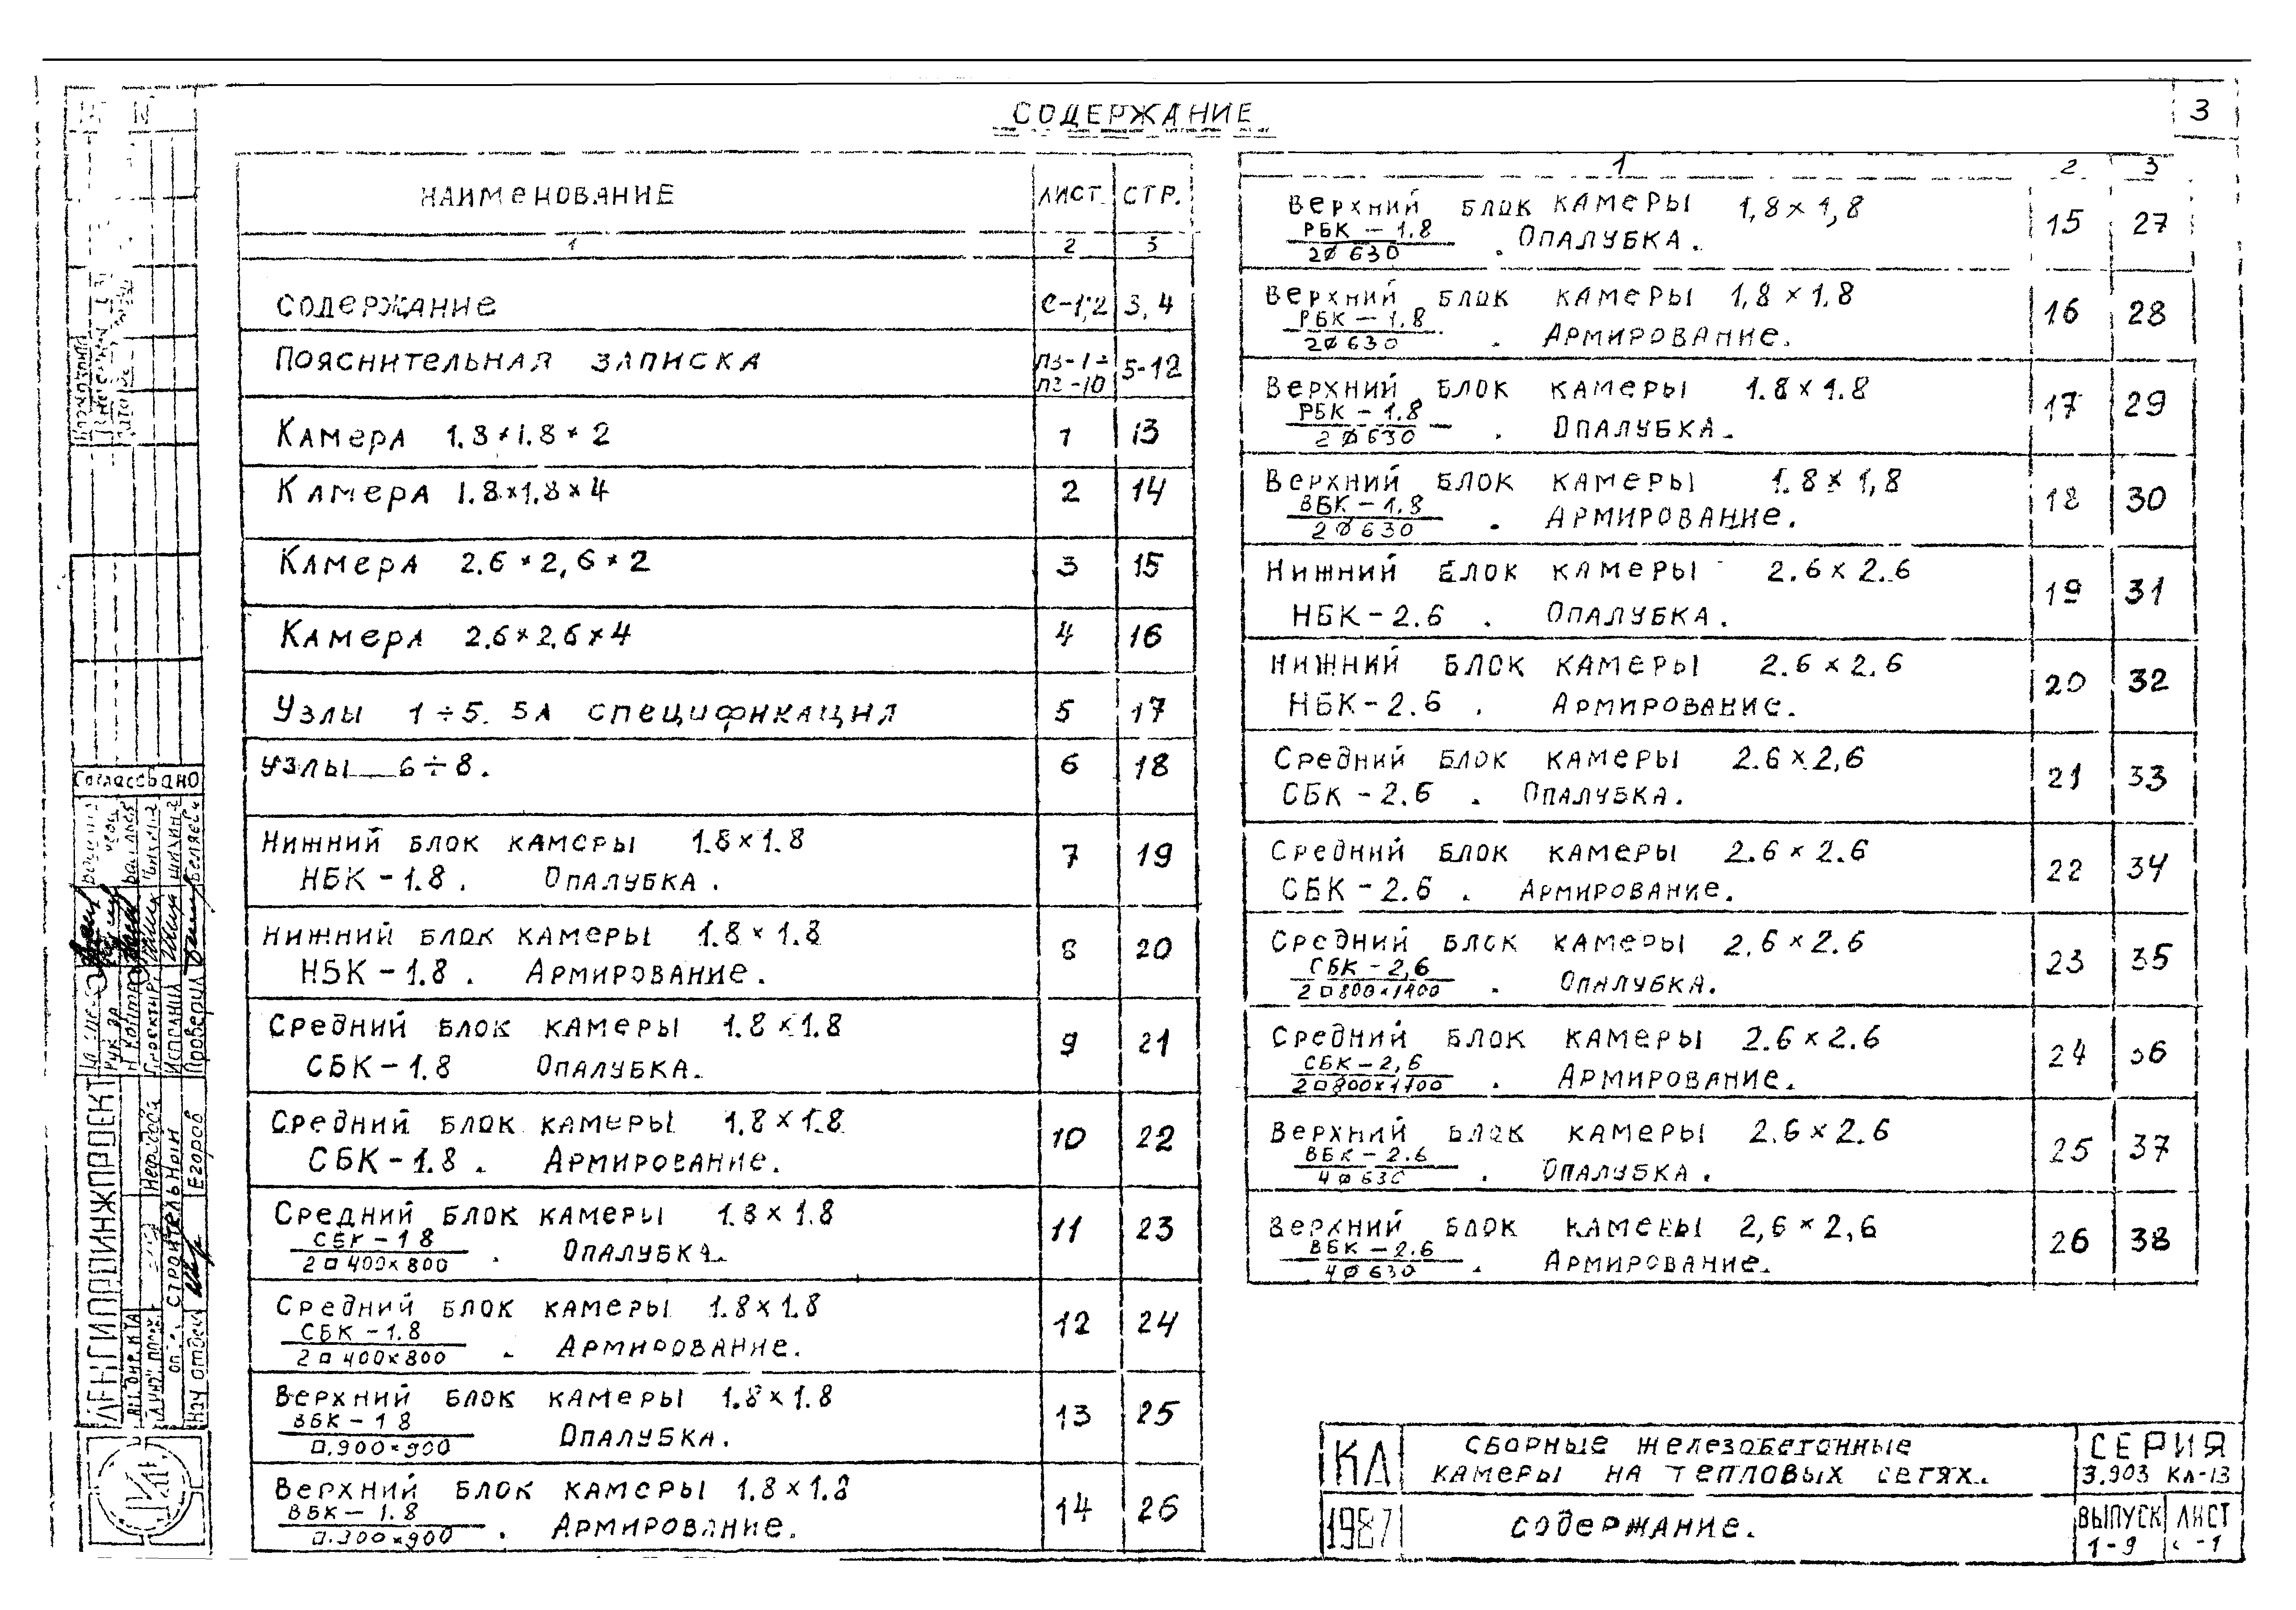 3
СОДЕРЖАНИЕ
НАИМЕНОВАНИЕ ЛИСТ СТР.
1 2 3
СОДЕРЖАНИЕ С-1,2 3, 4
ПОЯСНИТЕЛЬНАЯ ЗАПИСКА ПЗ-1÷ 5-12
ПЗ-10
КАМЕРА 1.8×1.8×2 1 13
КАМЕРА 1.8×1.8×4 2 14
КАМЕРА 2.6×2,6×2 3 15
КАМЕРА 2.6×2,6×4 4 16
УЗЛЫ 1÷5. 5А СПЕЦИФИКАЦИЯ 5 17
УЗЛЫ 6÷8. 6 18
НИЖНИЙ БЛОК КАМЕРЫ 1.8×1.8 7 19
НБК-1.8. ОПАЛУБКА.
НИЖНИЙ БЛОК КАМЕРЫ 1.8×1.8 8 20
НБК-1.8. АРМИРОВАНИЕ.
СРЕДНИЙ БЛОК КАМЕРЫ 1.8×1.8 9 21
СБК-1.8 ОПАЛУБКА.
СРЕДНИЙ БЛОК КАМЕРЫ 1.8×1.8 10 22
СБК-1.8. АРМИРОВАНИЕ.
СРЕДНИЙ БЛОК КАМЕРЫ 1.8×1.8 11 23
СБК-1 8
2□400×800 . ОПАЛУБКА.
СРЕДНИЙ БЛОК КАМЕРЫ 1.8×1.8 12 24
СБК-1.8
2□400×800 . АРМИРОВАНИЕ.
ВЕРХНИЙ БЛОК КАМЕРЫ 1.8×1.8 13 25
ВБК-1 8
□.900×900 ОПАЛУБКА.
ВЕРХНИЙ БЛОК КАМЕРЫ 1.8×1.8 14 26
ВБК-1.8
□.900×900 . АРМИРОВАНИЕ.
1 2 3
ВЕРХНИЙ БЛОК КАМЕРЫ 1,8×1,8 15 27
РБК-1.8
2Ø630 . ОПАЛУБКА.
ВЕРХНИЙ БЛОК КАМЕРЫ 1,8×1.8 16 28
РБК-1.8
2Ø630 . АРМИРОВАНИЕ.
ВЕРХНИЙ БЛОК КАМЕРЫ 1.8×1.8 17 29
РБК-1.8
2Ø630 . ОПАЛУБКА.
ВЕРХНИЙ БЛОК КАМЕРЫ 1.8×1,8 18 30
ВБК-1.8
2Ø630 . АРМИРОВАНИЕ.
НИЖНИЙ БЛОК КАМЕРЫ 2.6×2.6 19 31
НБК-2.6 . ОПАЛУБКА.
НИЖНИЙ БЛОК КАМЕРЫ 2.6×2.6 20 32
НБК-2.6 . АРМИРОВАНИЕ.
СРЕДНИЙ БЛОК КАМЕРЫ 2.6×2,6 21 33
СБК-2.6 . ОПАЛУБКА.
СРЕДНИЙ БЛОК КАМЕРЫ 2.6×2.6 22 34
СБК-2.6 . АРМИРОВАНИЕ.
СРЕДНИЙ БЛОК КАМЕРЫ 2,6×2.6 23 35
СБК-2,6
. ОПАЛУБКА.
СРЕДНИЙ БЛОК КАМЕРЫ 2.6×2.6 24 36
СБК-2,6
. АРМИРОВАНИЕ.
ВЕРХНИЙ БЛОК КАМЕРЫ 2.6×2.6 25 37
ВБК-2.6
4Ø630 . ОПАЛУБКА.
ВЕРХНИЙ БЛОК КАМЕРЫ 2,6×2,6 26 38
ВБК-2.6
4Ø630 . АРМИРОВАНИЕ.
КЛ СБОРНЫЕ ЖЕЛЕЗОБЕТОННЫЕ СЕРИЯ
КАМЕРЫ НА ТЕПЛОВЫХ СЕТЯХ. 3.903 КЛ-13
1987 СОДЕРЖАНИЕ. ВЫПУСК ЛИСТ
1-9 с-1
СОГЛАСОВАНО
ЛЕНГИПРОИНЖПРОЕКТ
СТРОИТЕЛЬНЫЙ
НАЧ ОТДЕЛ ЕГОРОВ
ПРОВЕРИЛ БЕЛЯЕВ